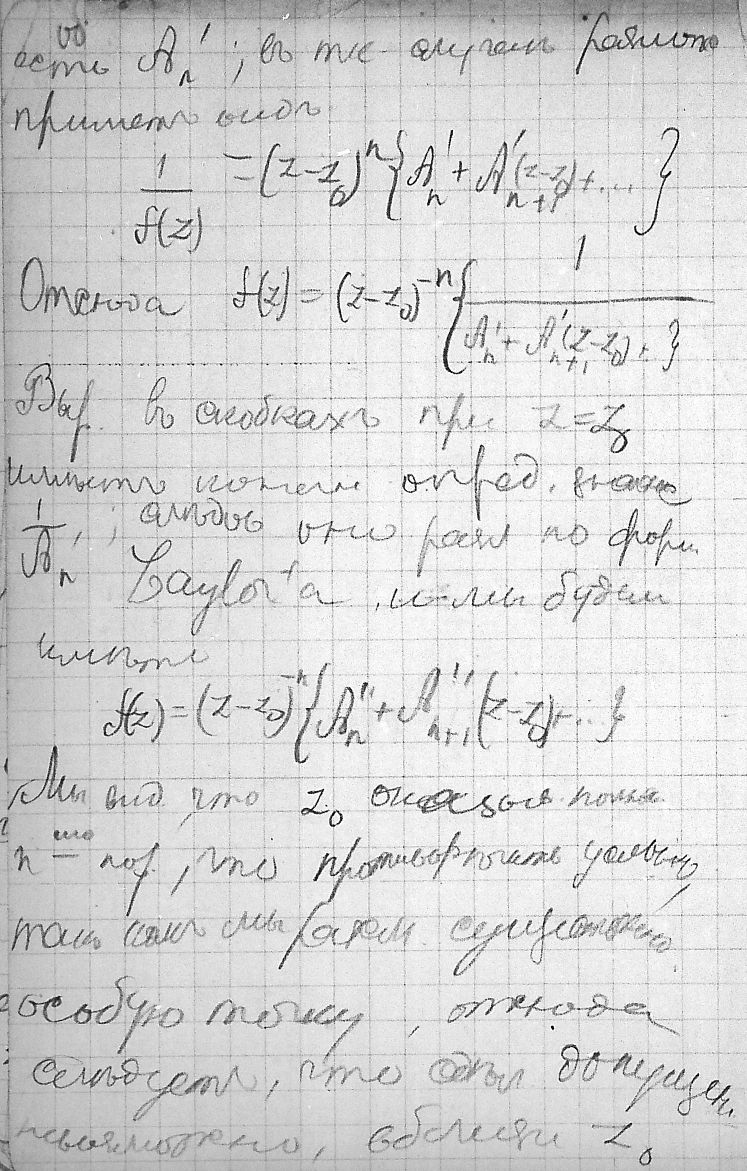 есть A'ₙ ; въ т же случаѣ разлож
приметъ видъ
1/f(z) = (z-z₀)ⁿ{A'ₙ + A'ₙ₊₁(z-z₀)+...}
Отсюда f(z) = (z-z₀)⁻ⁿ{1/(A'ₙ + A'ₙ₊₁(z-z₀)+.}
Выр. въ скобкахъ при z=z₀
имѣетъ конечн опред. знач
1/A'ₙ ; слѣдов оно разл по форм.
Taylor'а, и мы будем
имѣть
f(z) = (z-z₀)⁻ⁿ{A''ₙ + A''ₙ₊₁(z-z₀)+...}
Мы вид, что z₀ полюс
n — пор, что противорѣчитъ условію,
такъ какъ мы существенно
особую точку, отсюда
слѣдуетъ, что допущен
невозможно, вблизи z₀